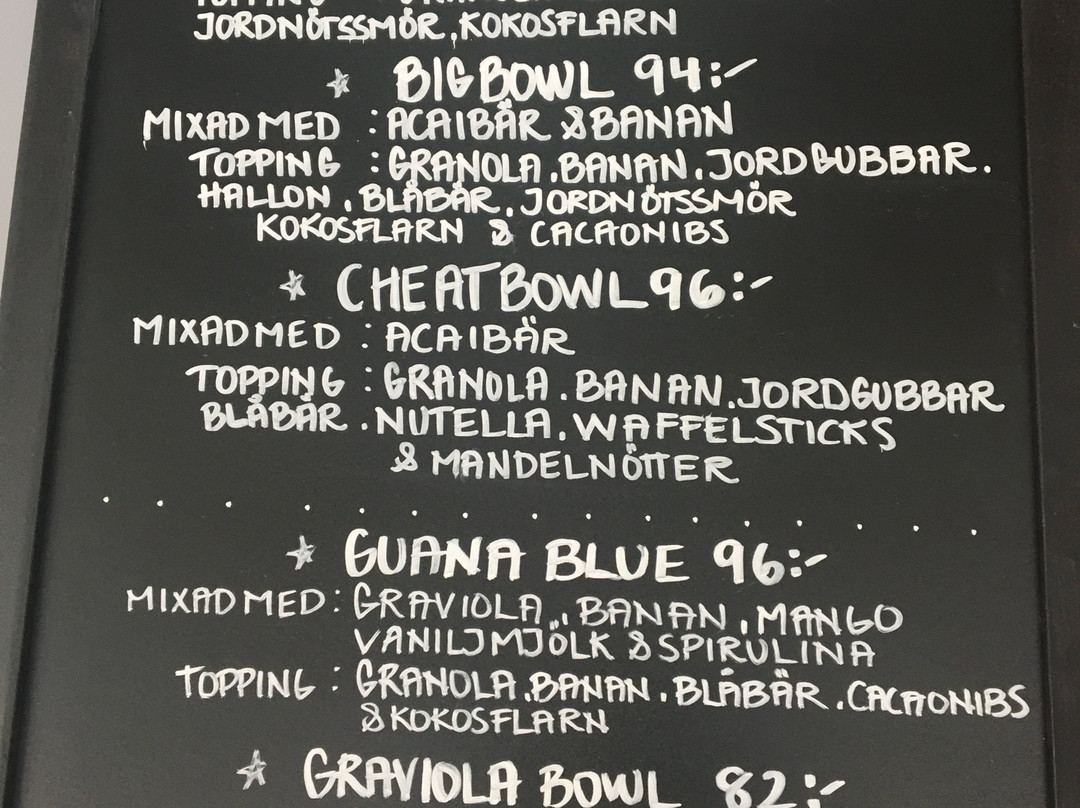 JORDNÖTSSMÖR, KOKOSFLARN
☆ BIG BOWL 94:-
MIXAD MED : ACAIBÄR & BANAN
TOPPING : GRANOLA. BANAN. JORDGUBBAR.
HALLON. BLÅBÄR. JORDNÖTSSMÖR
KOKOSFLARN & CACAONIBS
☆ CHEAT BOWL 96:-
MIXAD MED : ACAIBÄR
TOPPING : GRANOLA. BANAN. JORDGUBBAR
BLÅBÄR. NUTELLA. WAFFELSTICKS
& MANDELNÖTTER
. . . . . . . . . . . . . . .
☆ GUANA BLUE 96:-
MIXAD MED : GRAVIOLA, BANAN, MANGO
VANILJMJÖLK & SPIRULINA
TOPPING : GRANOLA. BANAN. BLÅBÄR. CACAONIBS
& KOKOSFLARN
☆ GRAVIOLA BOWL 82:-